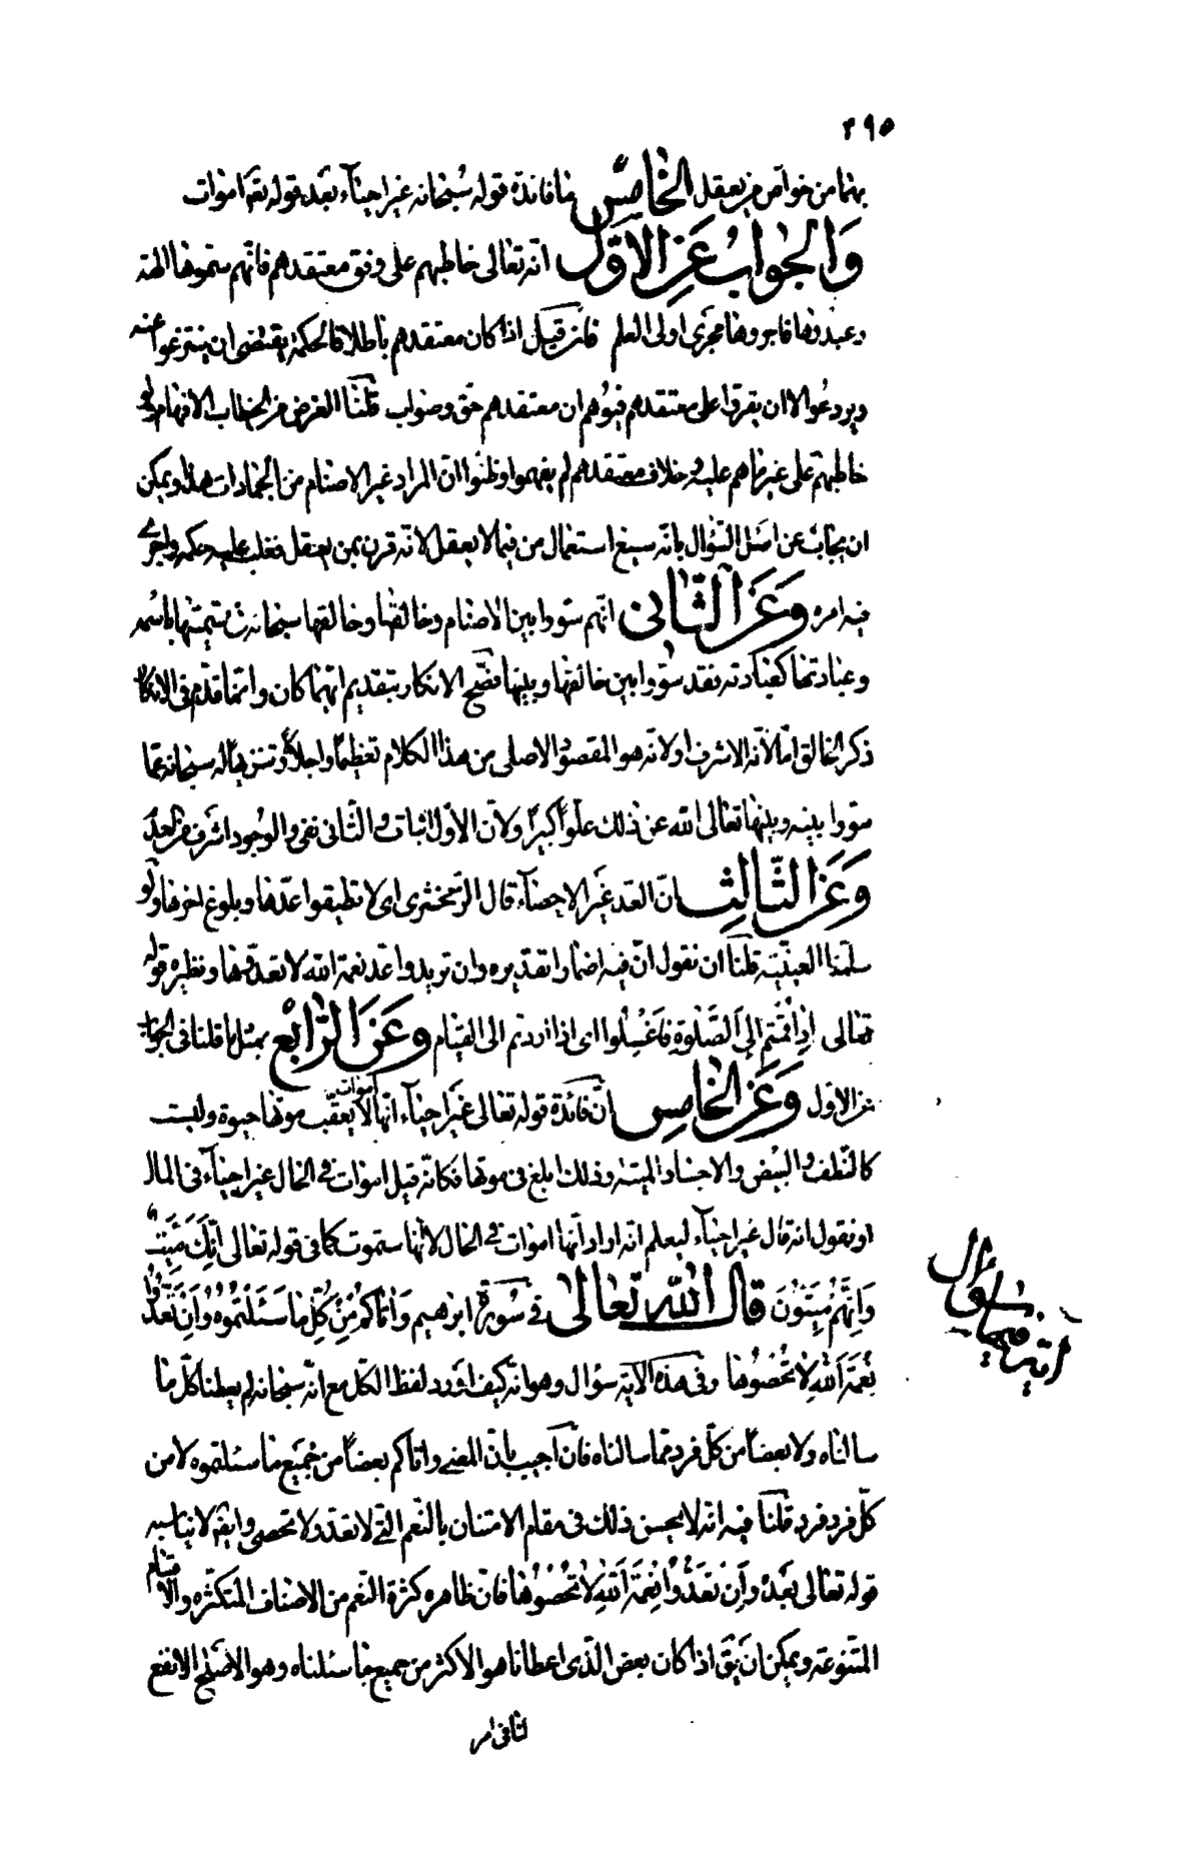 ٢٩٥
بهما من خواص من يعقل الخامس ما فائدة قوله سبحانه غير احياء بعد قوله تعم اموات
والجواب عن الاول انه تعالى خاطبهم على وفق معتقدهم فانهم سموها الهة
وعبدوها فاجروها مجرى اولى العلم فان قيل اذا كان معتقدهم باطلا فالحكمة يقتضى ان ينتزعوا عنه
ويردعوا لا ان يقروا على معتقدهم فيوهم ان معتقدهم حق وصواب قلنا الغرض من الخطاب الافهام ولو
خاطبهم على غير ما هم عليه وخلاف معتقدهم لم يفهموا وظنوا ان المراد غير الاصنام من الجمادات هذا ويمكن
ان يجاب عن اصل السؤال بانه سيغ استعمال من فيما لا يعقل لانه قرن بمن يعقل فغلب عليه حكمه واجرى
فيه امره وعن الثانى انهم سووا بين الاصنام وخالقها وخالقها سبحانه فى تسميتها باسمه
وعبادتها كعبادته فقد سووا بين خالقها وبينها فصح الانكار بتقديم ايهما كان وانما قدم فى الانكار
ذكر الخالق اما لانه الاشرف او لانه هو المقصود الاصلى من هذا الكلام تعظيما واجلالا وتنزيها له سبحانه عما
سووا بينه وبينها تعالى الله عن ذلك علوا كبيرا ولان الاول اثبات والثانى نفى والوجود اشرف من العدم
وعن الثالث ان العد غير الاحصاء قال الزمخشرى اى لا تطيقوا عدها وبلوغ اخرها ولو
سلمنا العينية قلنا ان نقول ان فيه اضمارا تقديره وان تريدوا عد نعمة الله لا تعدوها ونظيره قوله
تعالى اذا قمتم الى الصلوة فاغسلوا اى اذا اردتم الى القيام وعن الرابع بمثل ما قلنا فى الجواب
عن الاول وعن الخامس ان فائدة قوله تعالى غير احياء انها اموات لا يعقب موتها حيوة وليست
كالنطف والبيض والاجساد الميتة وذلك ابلغ فى موتها فكانه قيل اموات فى الحال غير احياء فى المال
او نقول انه قال غير احياء ليعلم انه اراد انها اموات فى الحال لا انها ستموت كما فى قوله تعالى انك ميت
وانهم ميتون قال الله تعالى فى سورة ابرهيم واتاكم من كل ما سئلتموه وان تعدوا
نعمة الله لا تحصوها وفى هذه الاية سؤال وهو انه كيف اورد لفظ الكل مع انه سبحانه لم يعطنا كل ما
سالناه ولا بعضا من كل فرد مما سالناه فان اجيب بان المعنى واتاكم بعضا من جميع ما سئلتموه لا من
كل فرد فرد قلنا فيه انه لا يحسن ذلك فى مقام الامتنان بالنعم التى لا تعد ولا تحصى وايضا لا يناسبه
قوله تعالى بعده وان تعدوا نعمة الله لا تحصوها فان ظاهره كثرة النعم من الاصناف المتكثره والاقسام
المتنوعة ويمكن ان يق اذا كان بعض الذى اعطانا هو الاكثر من جميع ما سئلناه وهو الاصلح الانفع
لنا فى امر
اية فيها سؤال